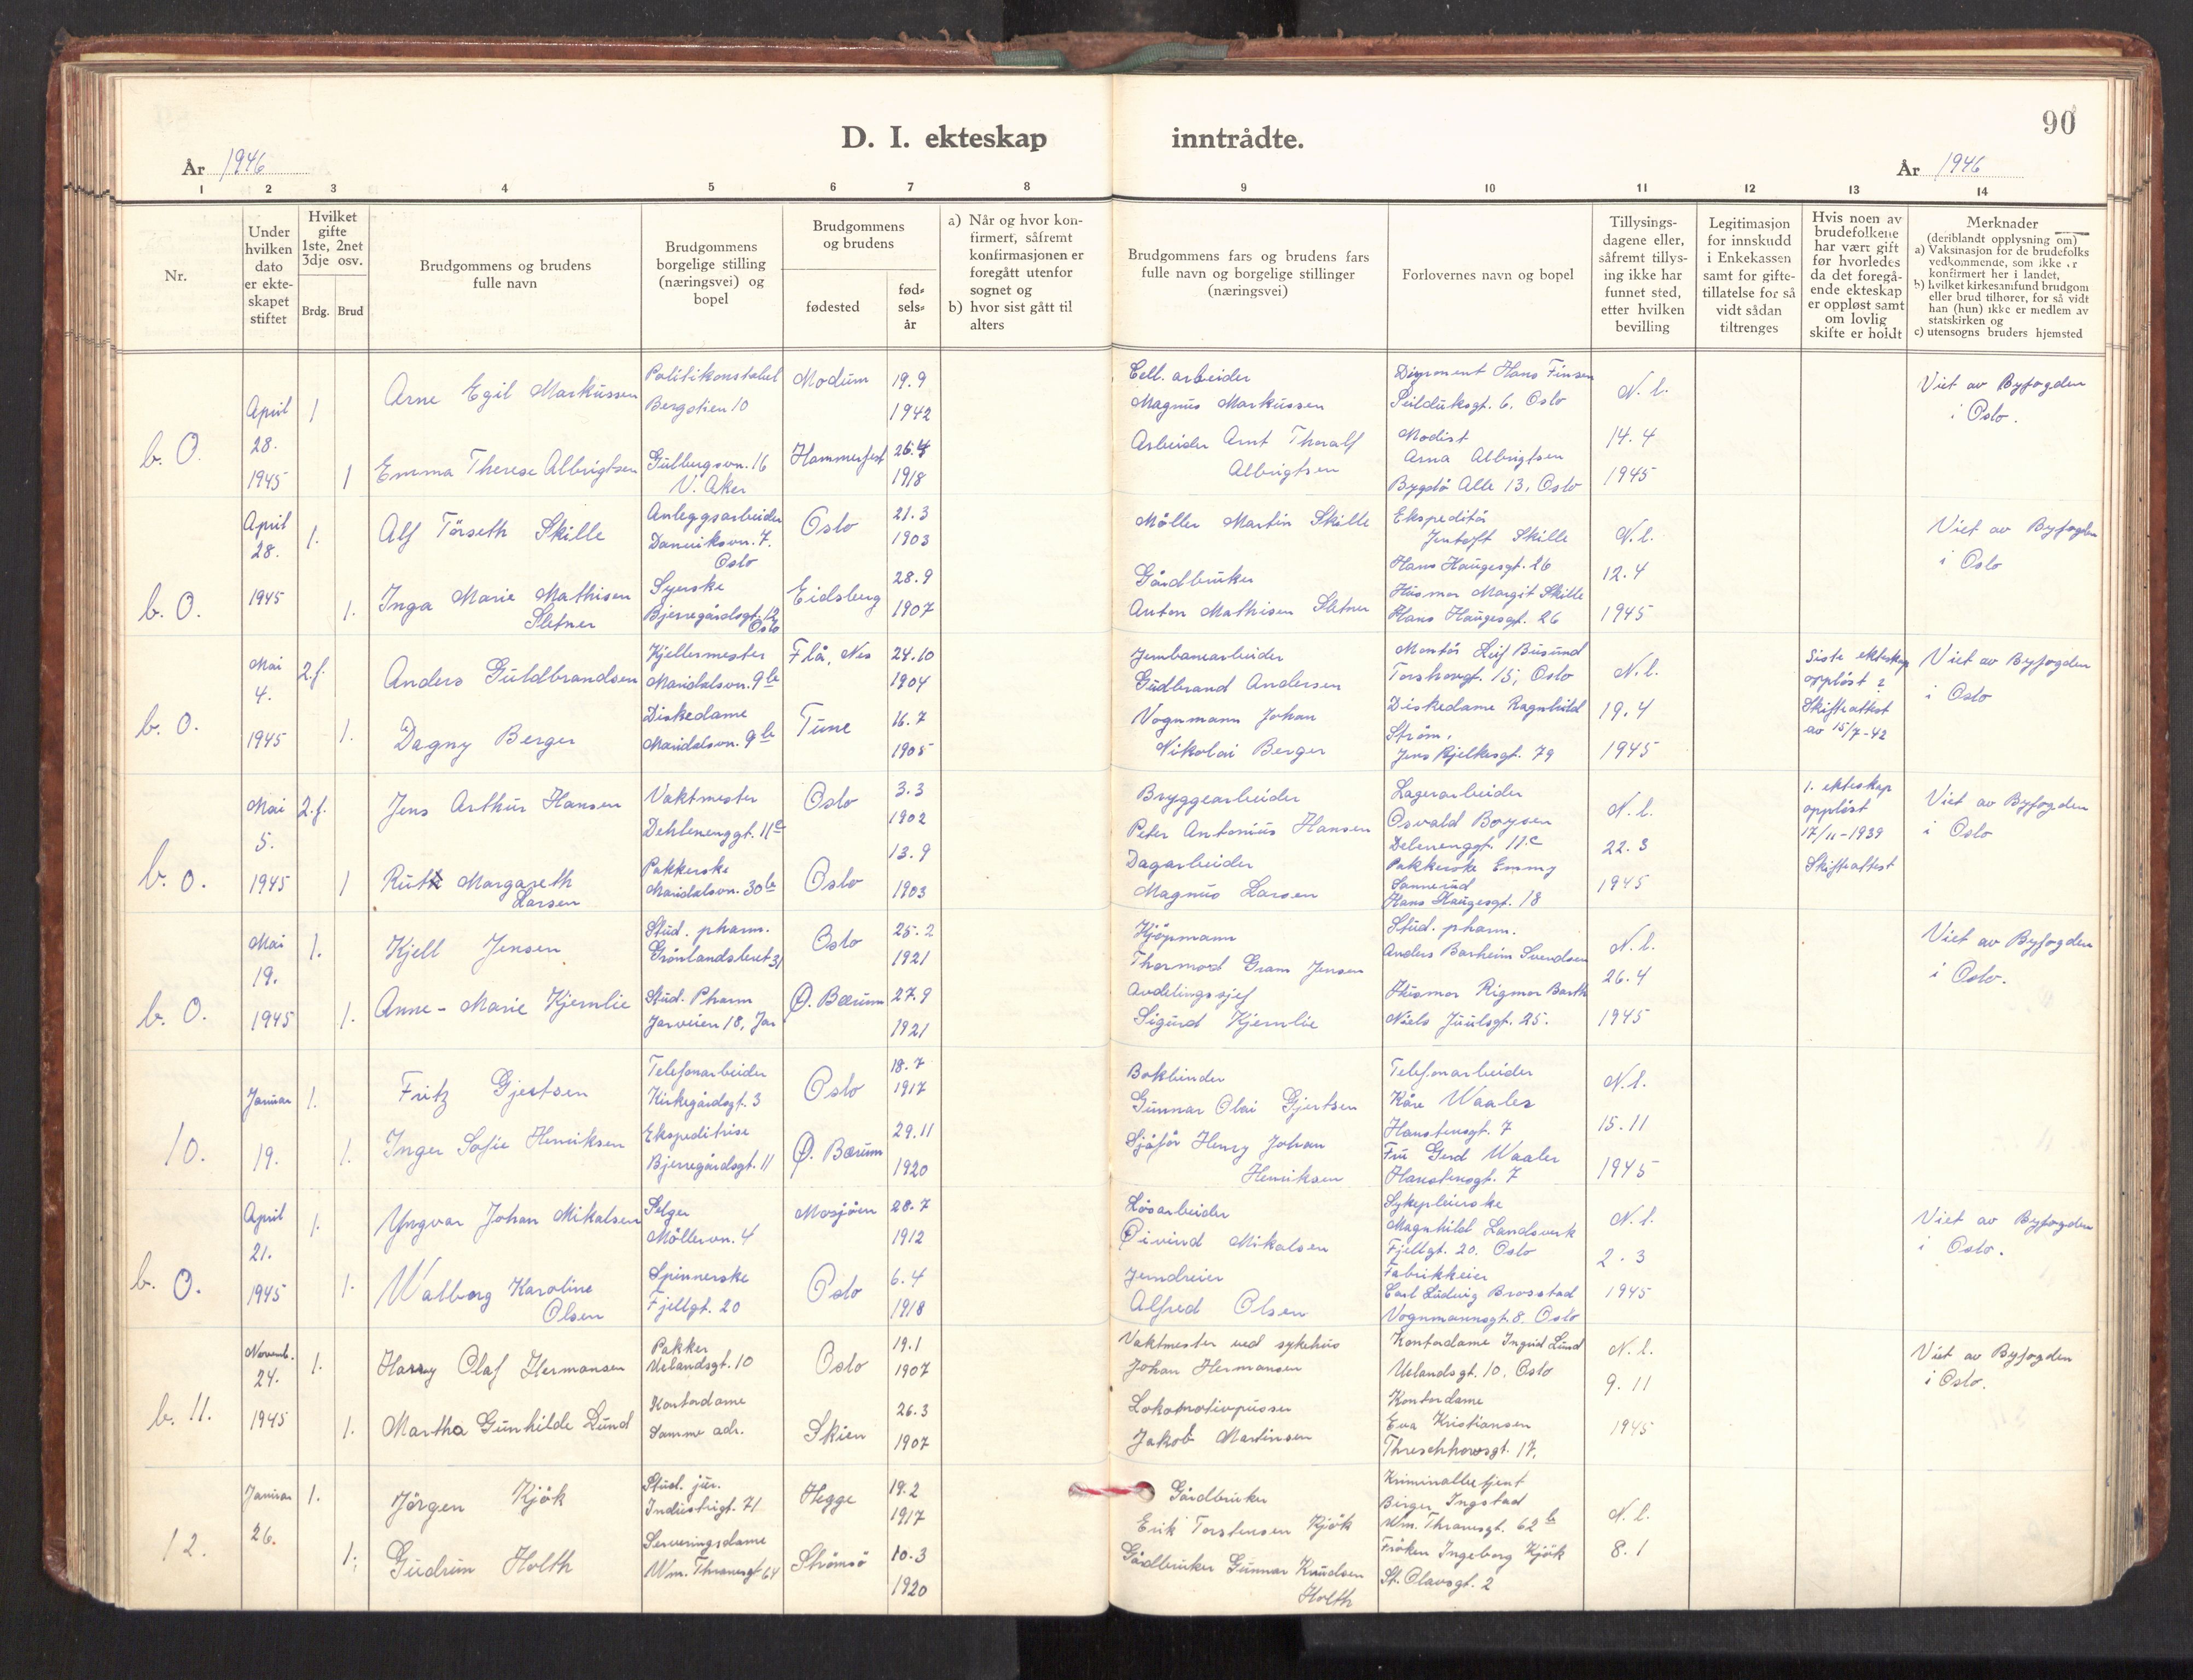 90
D. I. ekteskap inntrådte.
År 1946 År 1946
1 2 3 4 5 6 7 8 9 10 11 12 13 14
Nr.
Under
hvilken
dato
er ekte-
skapet
stiftet
Hvilket
gifte
1ste, 2net
3dje osv.
Brdg. Brud
Brudgommens og brudens
fulle navn
Brudgommens
borgelige stilling
(næringsvei) og
bopel
Brudgommens
og brudens
fødested
fød-
sels-
år
a) Når og hvor kon-
firmert, såfremt
konfirmasjonen er
foregått utenfor
sognet og
b) hvor sist gått til
alters
Brudgommens fars og brudens fars
fulle navn og borgelige stillinger
(næringsvei)
Forlovernes navn og bopel
Tillysings-
dagene eller,
såfremt tillys-
ing ikke har
funnet sted,
etter hvilken
bevilling
Legitimasjon
for innskudd
i Enkekassen
samt for gifte-
tillatelse for så
vidt sådan
tiltrenges
Hvis noen av
brudefolkene
har vært gift
før hvorledes
da det foregå-
ende ekteskap
er oppløst samt
om lovlig
skifte er holdt
Merknader
(deriblandt opplysning om)
a) Vaksinasjon for de brudefolks
vedkommende, som ikke er
konfirmert her i landet,
b) hvilket kirkesamfund brudgom
eller brud tilhører, for så vidt
han (hun) ikke er medlem av
statskirken og
c) utensogns bruders hjemsted
b. O.
April
28.
1945
1
1
Arne Egil Markussen
Emma Therese Albrigtsen
Politikonstabel
Bergolien 10
Gulbergsvn. 16
V. Aker
Modum
Hammerfest
19.9
1942
26.4
1918
Cell. arbeider
Magnus Markussen
Arbeider Arnt Thoralf
Albrigtsen
Hans Finsen
Seilduksgt. 6, Oslo
Modist
Arna Albrigtsen
Bygdö Alle 13, Oslo
N. l.
14.4
1945
Viet av Byfogden
i Oslo.
b. O.
April
28.
1945
1.
1.
Alf Törseth Skille
Inga Marie Mathisen
Sletner
Anleggsarbeider
Danviksvn. 7.
Oslo
Syerske
Bjerregårdsgt. 12
Oslo
Oslo
Eidsberg
21.3
1903
28.9
1907
Möller Martin Skille
Gårdbruker
Anton Mathisen Sletner
Ekspeditör
Jentoft Skille
Hans Haugesgt. 26
Husmor Margit Skille
Hans Haugesgt. 26
N.l.
12.4
1945
Viet av Byfogden
i Oslo
b. O.
Mai
4.
1945
2.f.
1.
Anders Guldbrandsen
Dagny Berger
Kjellermester
Maridalsvn. 9b
Diskedame
Maridalsvn. 9b
Flå, Nes
Tune
24.10
1904
16.7
1905
Jernbanearbeider
Gudbrand Andersen
Vognmann Johan
Nikolai Berger
Montör Leif Busund
Torshovgt. 15, Oslo
Diskedame Ragnhild
Ström,
Jens Bjelkesgt. 79
N.l.
19.4
1945
Siste ekteskap
opplöst ?
Skifteattest
av 15/7-42
Viet av Byfogden
i Oslo
b. O.
Mai
5.
1945
2.f.
1
Jens Arthur Hansen
Ruth Margareth
Larsen
Vaktmester
Dehlenenggt. 11c
Pakkerske
Maridalsvn. 30b
Oslo
Oslo
3.3
1902
13.9
1903
Bryggearbeider
Peter Antonius Hansen
Dagarbeider
Magnus Larsen
Lagerarbeider
Osvald Boysen
Delenenggt. 11c
Pakkerske Emmy
Sannerud
Hans Haugesgt. 18
N.l.
22.3
1945
1. ekteskap
opplöst
17/11-1939
Skifteattest
Viet av Byfogden
i Oslo
b. O.
Mai
19.
1945
1.
1.
Kjell Jensen
Anne-Marie Kjernlie
Stud. pharm.
Grönlandsleret 31
Stud. Pharm
Jarveien 18, Jar
Oslo
Ø. Bærum
25.2
1921
27.9
1921
Kjöpmann
Thormod Gram Jensen
Avdelingssjef
Sigurd Kjernlie
Stud. pharm.
Anders Barheim Svendsen
Husmor Rigmor Barth
Niels Juulsgt. 25.
N.l.
26.4
1945
Viet av Byfogden
i Oslo.
10.
Januar
19.
1.
1.
Fritz Gjertsen
Inger Sofie Henriksen
Telefonarbeider
Kirkegårdsgt. 3
Ekspeditrise
Bjerregårdsgt. 11
Oslo
Ø. Bærum
18.7
1917
29.11
1920
Bokbinder
Gunnar Olai Gjertsen
Sjåför Henry Johan
Henriksen
Telefonarbeider
Kåre Waaler
Hanstensgt. 7
Fru Gerd Waaler
Hanstensgt. 7
N.l.
15.11
1945
b. O.
April
21.
1945
1.
1.
Yngvar Johan Mikalsen
Walborg Karoline
Olsen
Selger
Möllervn. 4
Spinnerske
Fjellgt. 20
Mosjöen
Oslo
28.7
1912
6.4
1918
Lösarbeider
Øivind Mikalsen
Jerndreier
Alfred Olsen
Sykepleierske
Magnhild Landsverk
Fjellgt. 20. Oslo
Fabrikkeier
Carl Ludvig Brosstad
Vognmannsgt. 8. Oslo
N.l.
2.3
1945
Viet av Byfogden
i Oslo.
b. 11.
Novemb.
24.
1945
1.
1.
Harry Olaf Hermansen
Martha Gunhilde Lund
Pakker
Uelandsgt. 10
Kontordame
Samme adr.
Oslo
Skien
19.1
1907
26.3
1907
Vaktmester ved sykehus
Johan Hermansen
Lokomotivpusser
Jakob Martinsen
Kontordame Ingrid Lund
Uelandsgt. 10. Oslo
Kontordame
Eva Kristiansen
Threschhowsgt. 17.
N.l.
9.11
1945
Viet av Byfogden
i Oslo.
12.
Januar
26.
1.
1.
Jörgen Kjök
Gudrun Holth
Stud. jur.
Industrigt. 71
Serveringsdame
Wm. Thranesgt 64
Hegge
Strömsö
19.2
1917
10.3
1920
Gårdbruker
Erik Torstensen Kjök
Gårdbruker Gunnar Knudsen
Holth
Kriminalbetjent
Birger Ingstad
Wm. Thranesgt. 62b
Fröken Ingeborg Kjök
St. Olavsgt. 2
N.l.
8.1